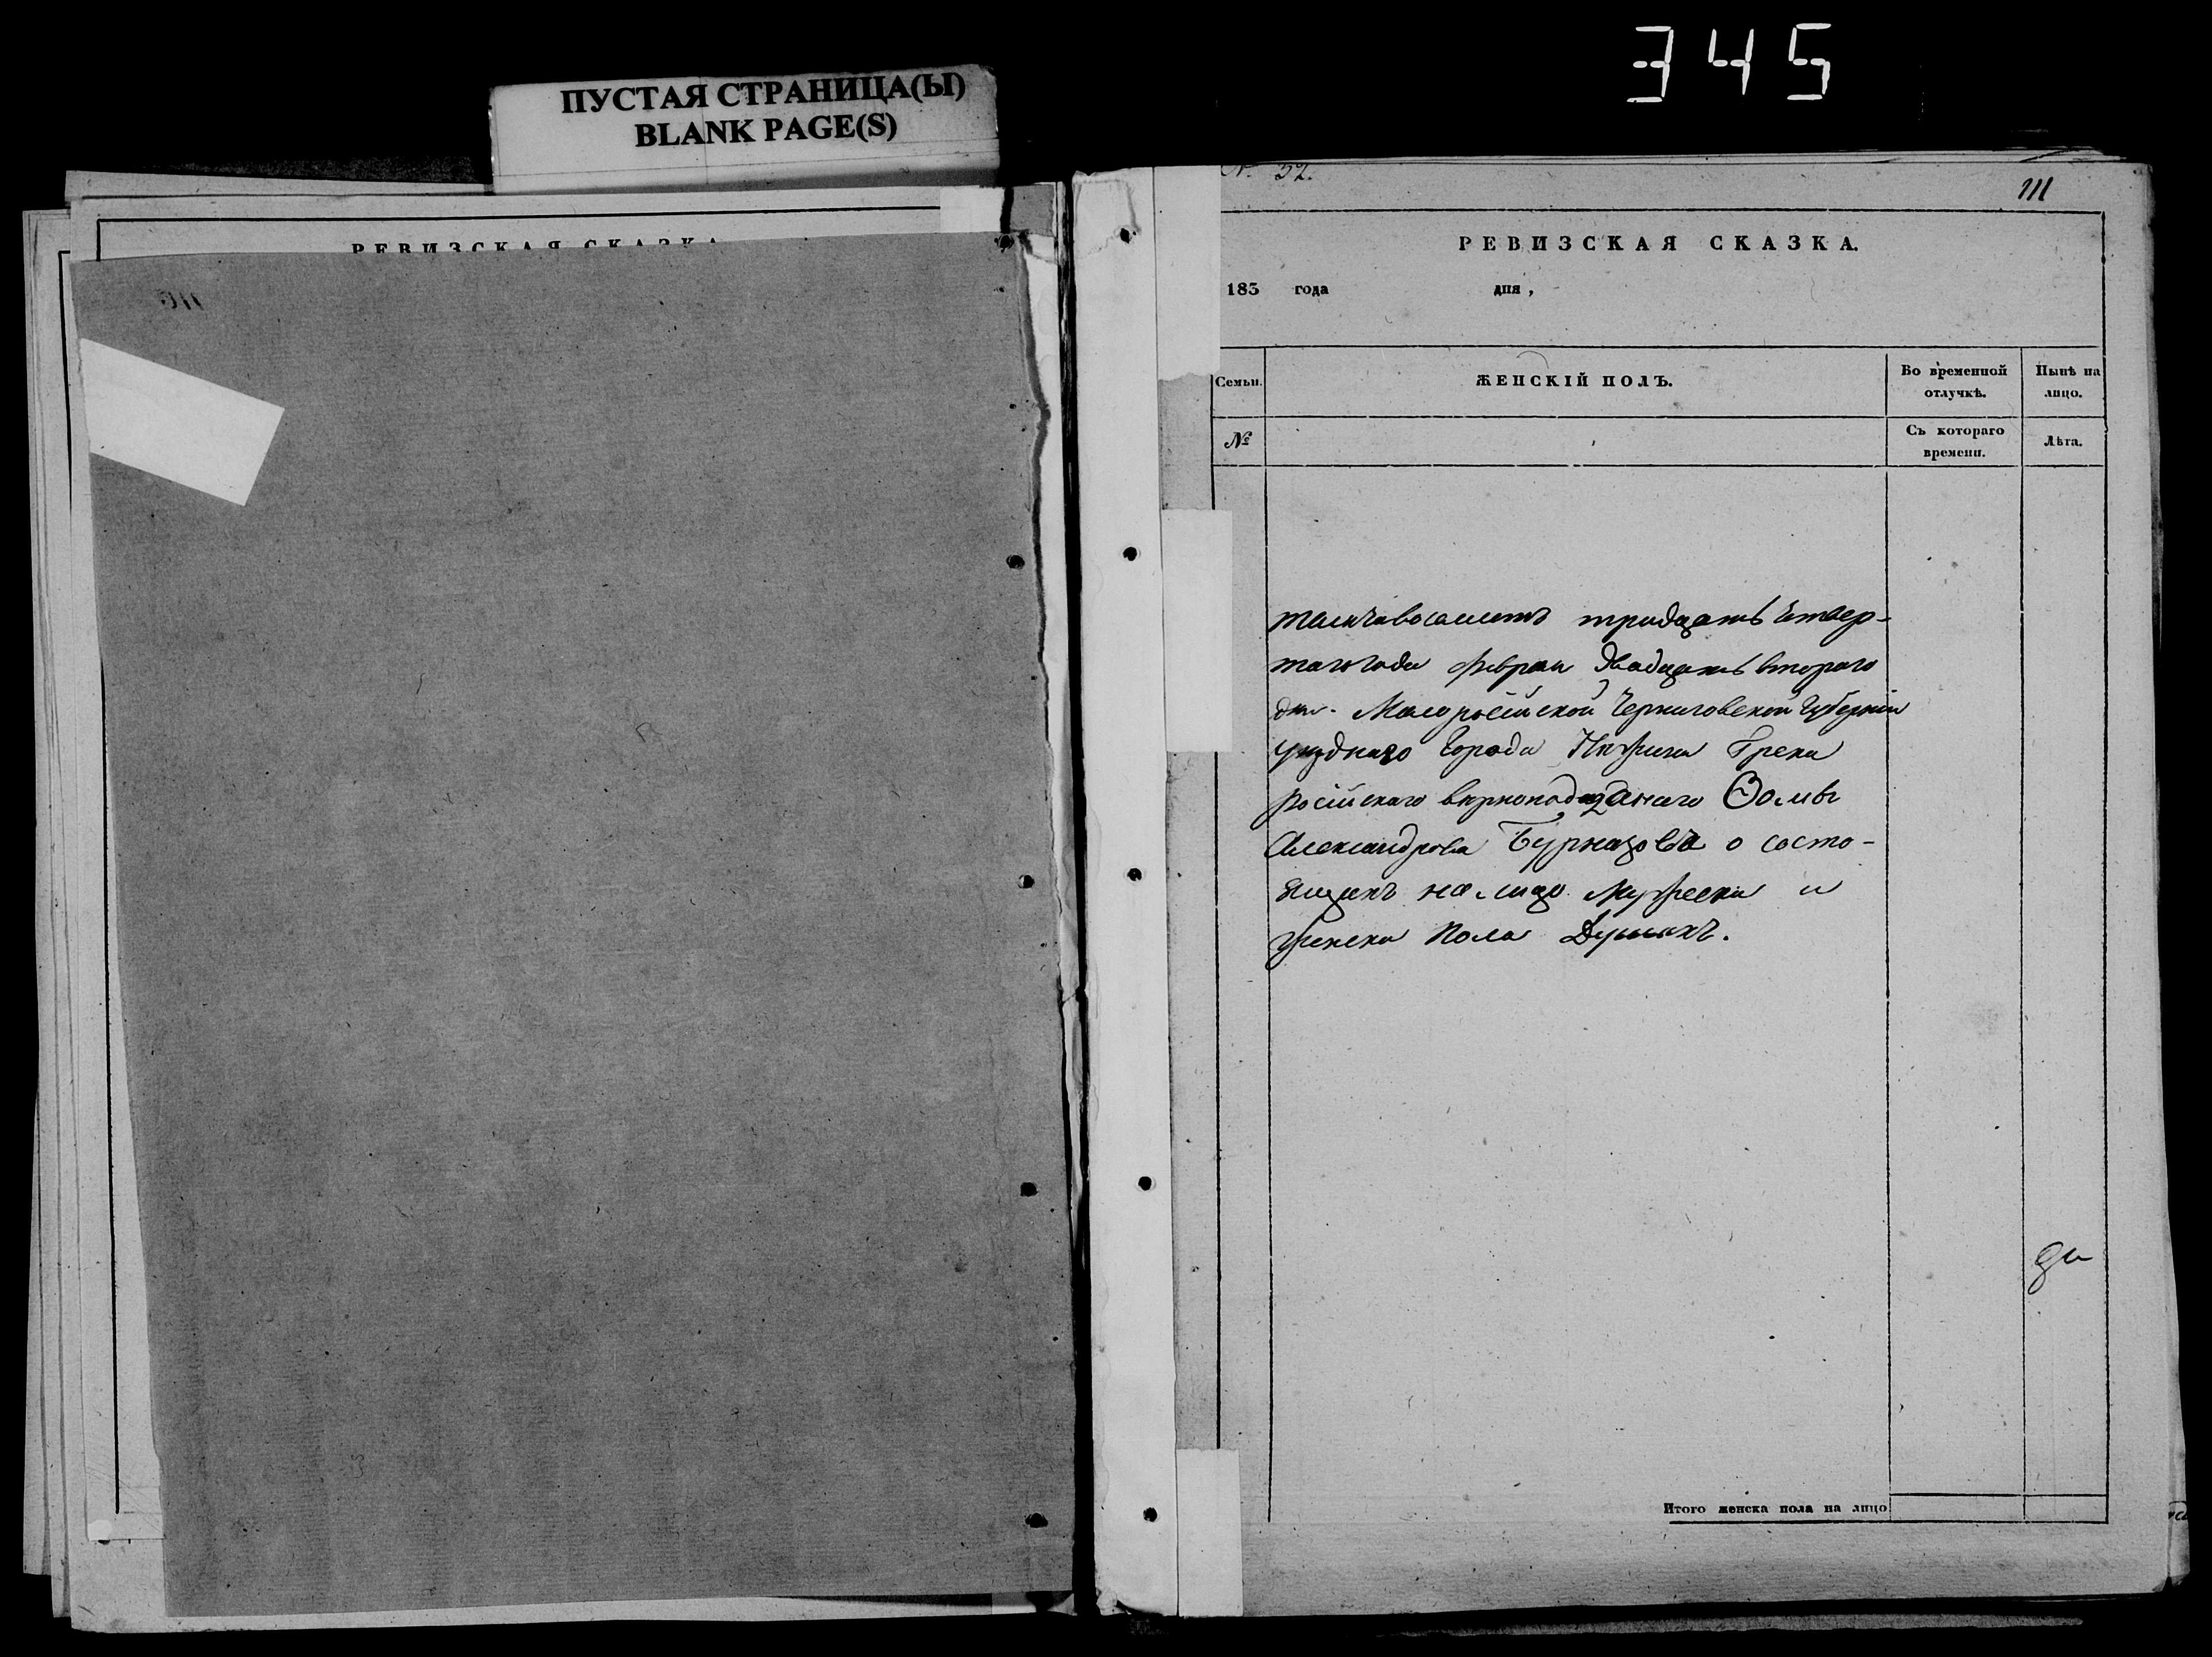 345
ПУСТАЯ СТРАНИЦА(Ы)
BLANK PAGE(S)
РЕВИЗСКАЯ СКАЗКА
№ 32.
111
РЕВИЗСКАЯ СКАЗКА.
183 года дня ,
Семьи. ЖЕНСКІЙ ПОЛЪ. Во временной отлучкѣ. Нынѣ на лицо.
№ Съ котораго времени. Лѣта.
тысяча восемсотъ тридцать четвер-
таго года Февраля двадцать втораго
дня. Малоросійской Черниговской Губерніи
уѣзднаго Города Нѣжина Грека
російскаго вѣрноподданаго Ѳомы
Александрова Бурназова о состо-
ящихъ на лицо Мужеска и
женска пола Душахъ.
Итого женска пола на лицо